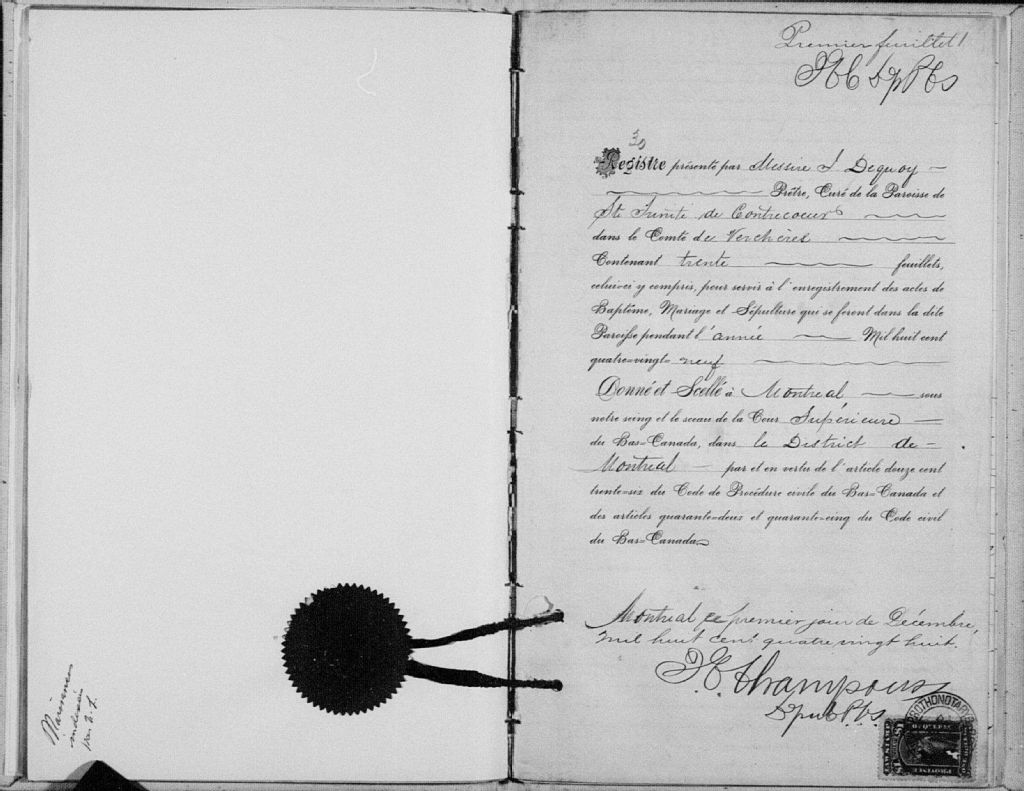 Premier feuillet 1
30
Registre présenté par Messire Dequoy
Prêtre, Curé de la Paroisse de
Ste Trinité de Contrecoeur
dans le Comté de Verchères
Contenant trente feuillets,
celui-ci y compris, pour servir à l'enregistrement des actes de
Baptême, Mariage et Sépulture qui se feront dans la dite
Paroisse pendant l'année Mil huit cent
quatre=vingt= neuf
Donné et Scellé à Montreal sous
notre seing et le sceau de la Cour Supérieure
du Bas=Canada, dans le District de
Montreal par et en vertu de l'article douze cent
trente=six du Code de Procédure civile du Bas=Canada et
des articles quarante=deux et quarante=cinq du Code civil
du Bas=Canada
Montreal ce premier jour de Décembre,
mil huit cent quatre vingt huit.
PROTHONOTARY